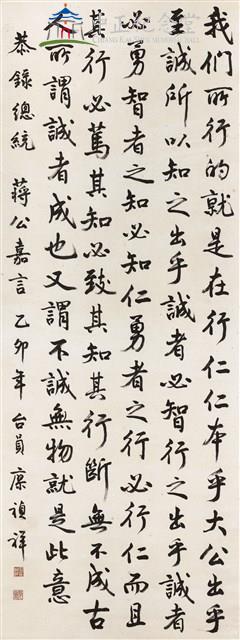 我們所行的就是在行仁仁本乎大公出乎
至誠所以知之出乎誠者必智行之出乎誠者
必勇智者之知必知仁勇者之行必行仁而且
其行必篤其知必致其知其行斷無不成古
所謂誠者成也又謂不誠無物就是此意
恭錄總統 蔣公嘉言 乙卯年 台員 康禎祥
中正紀念堂
CHIANG KAI-SHEK MEMORIAL HALL